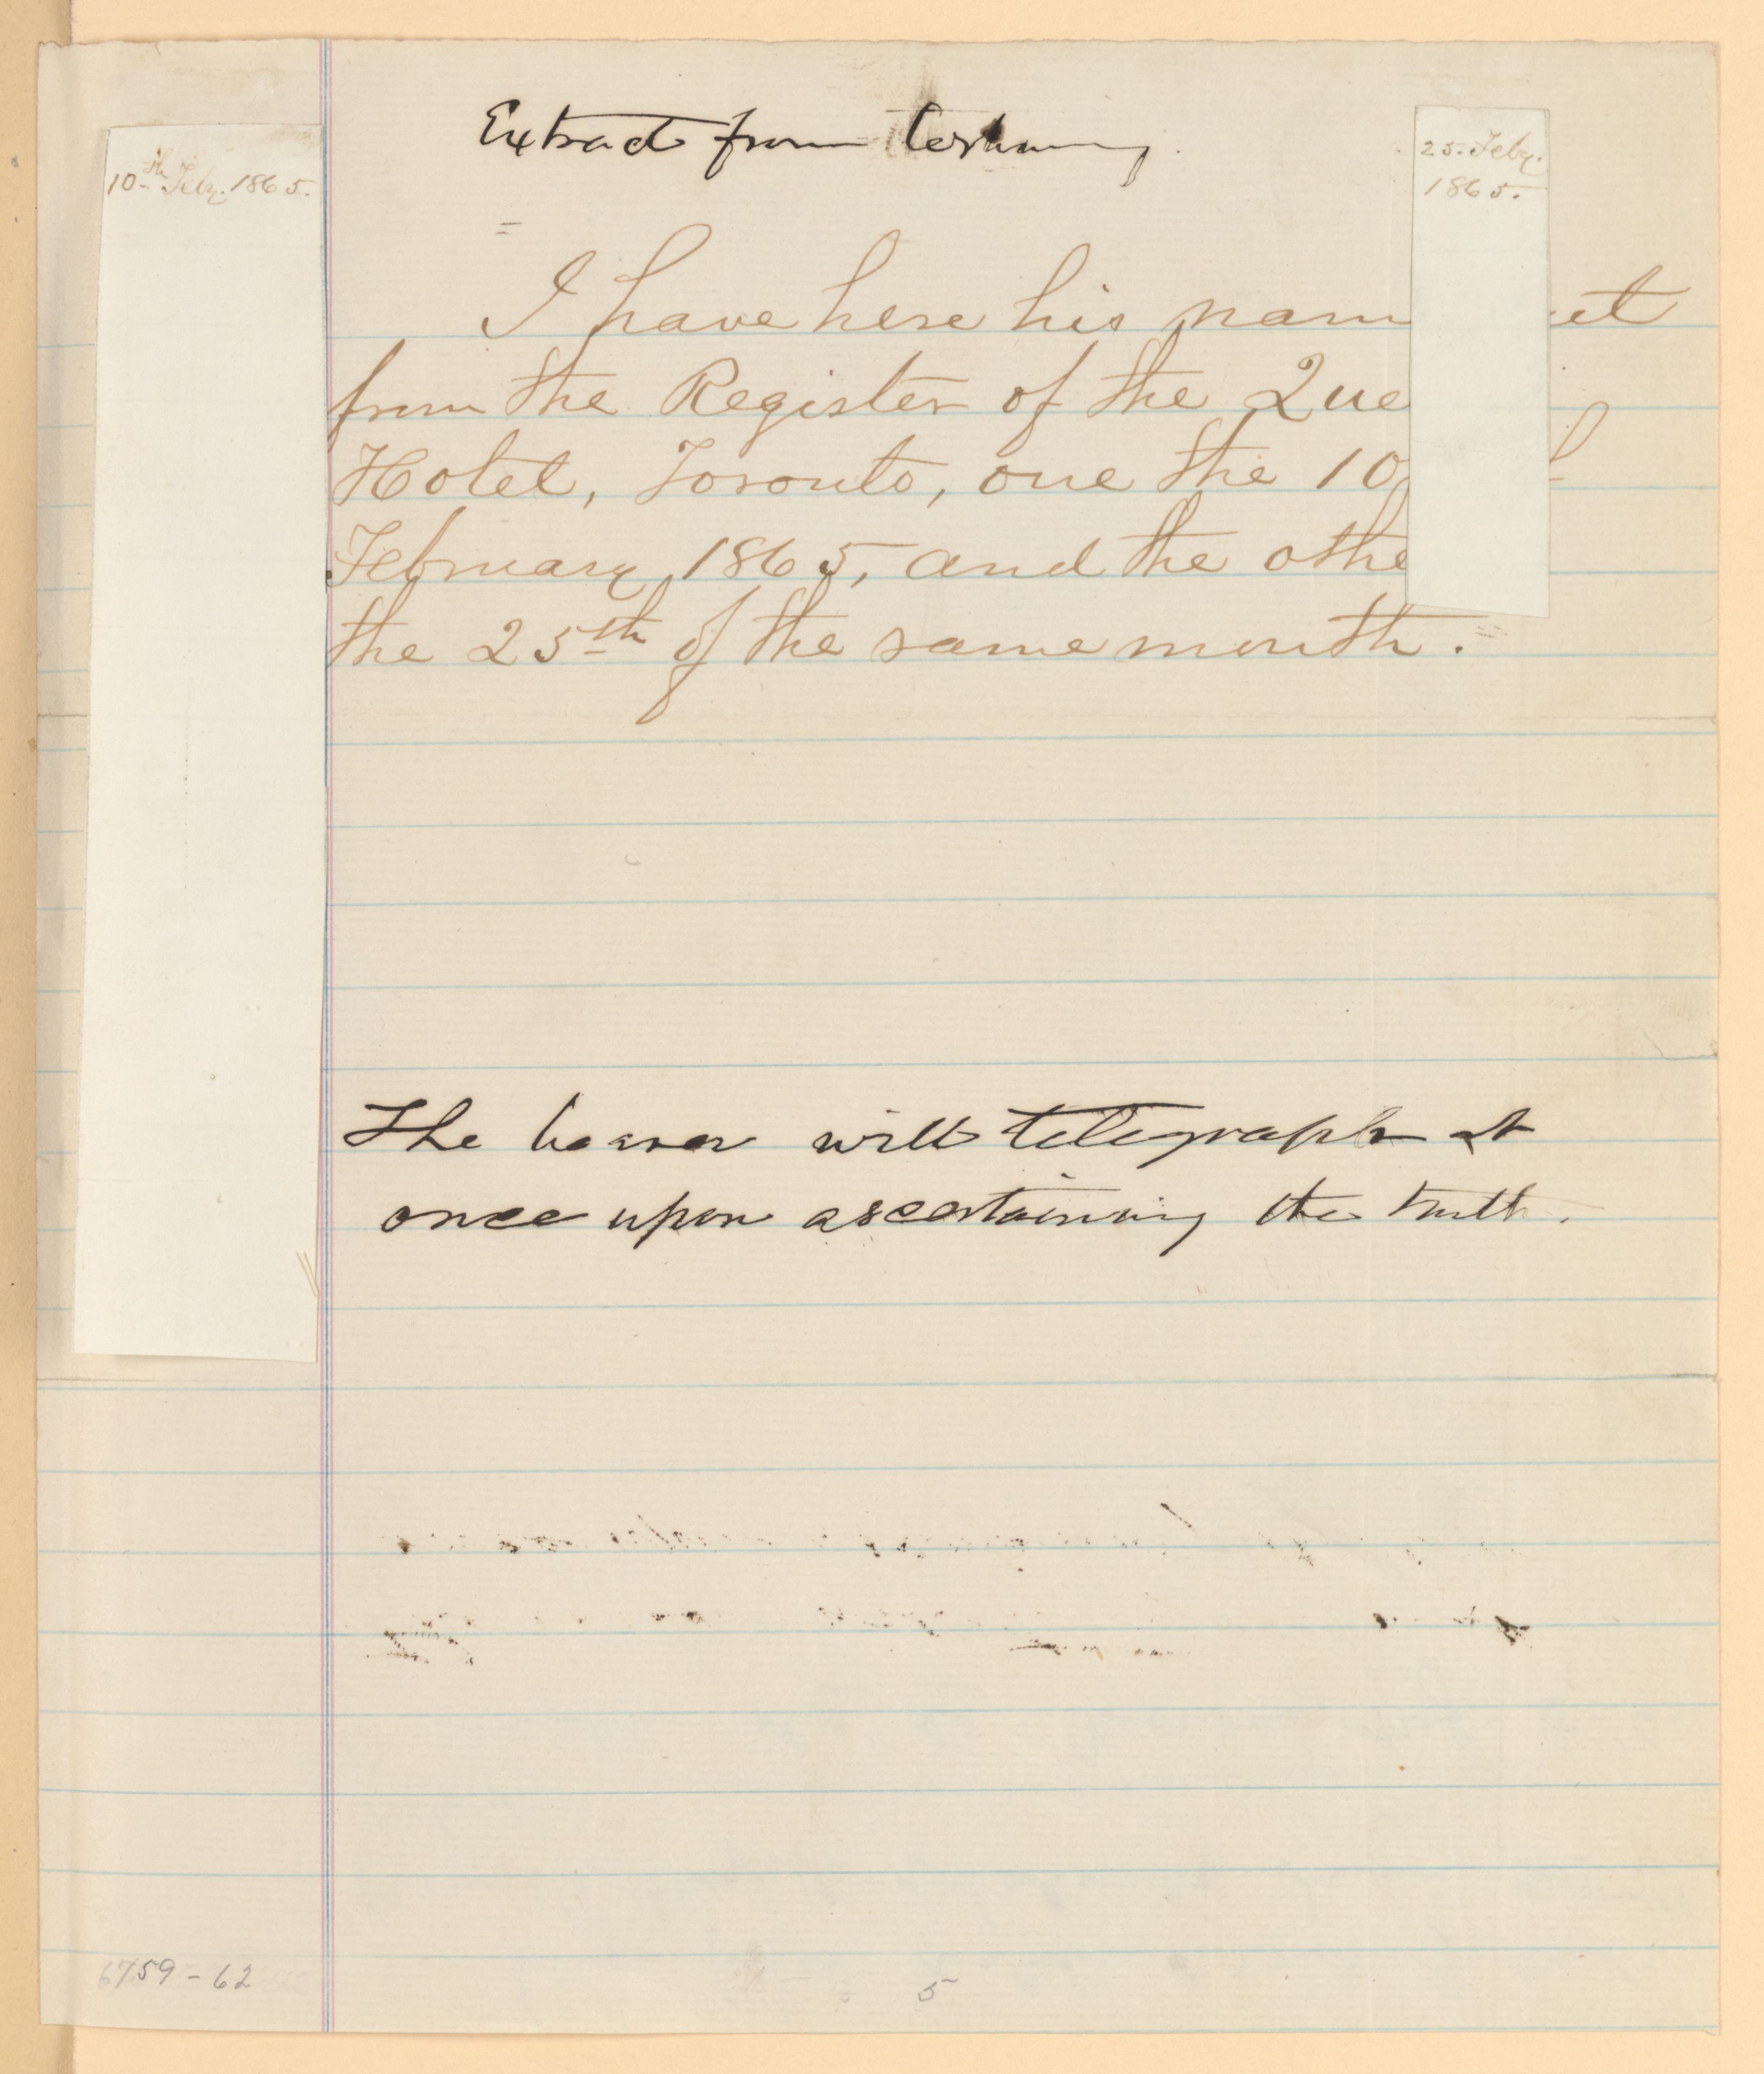 10th Feby. 1865.
25. Feby.
1865.
Extract from testimony.
I have here his nam
from the Register of the Que
Hotel, Toronto, one the 10
February 1865, and the othe
the 25th of the same month.
The bearer will telegraph at
once upon ascertaining the truth.
6759-62
5